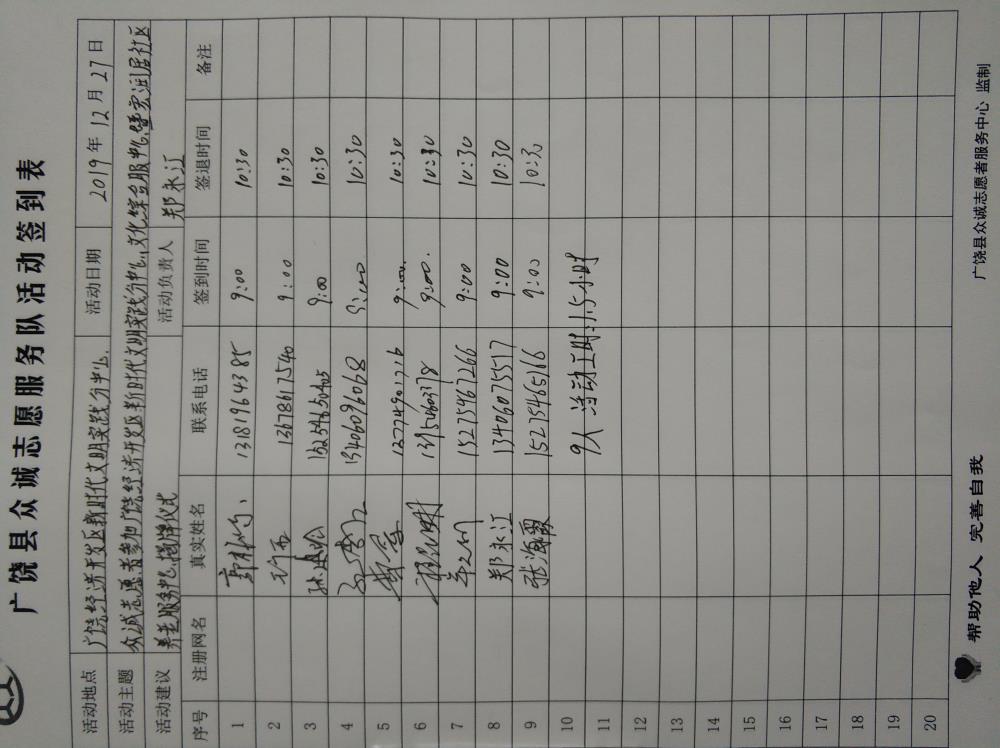 广饶县众诚志愿服务队活动签到表
活动地点 广饶经济开发区新时代文明实践分中心. 活动日期 2019年12月27日
活动主题 众诚志愿者参加广饶经济开发区新时代文明实践分中心,文化综合服中心,暨宏润居社区
活动建议 养老服务中心,揭牌仪式 活动负责人 郑永江
序号 注册网名 真实姓名 联系电话 签到时间 签退时间 备注
1 13181964385 9:00 10:30
2 13678617540 9:00 10:30
3 9:00 10:30
4 13406096068 9:00 10:30
5 9:00 10:30
6 9:00 10:30
7 15275467266 9:00 10:30
8 郑永江 13406075517 9:00 10:30
9 张海霞 15275465166 9:00 10:30
10 9人 活动工时:1.5小时
11
12
13
14
15
16
17
18
19
20
帮助他人 完善自我 广饶县众诚志愿者服务中心 监制